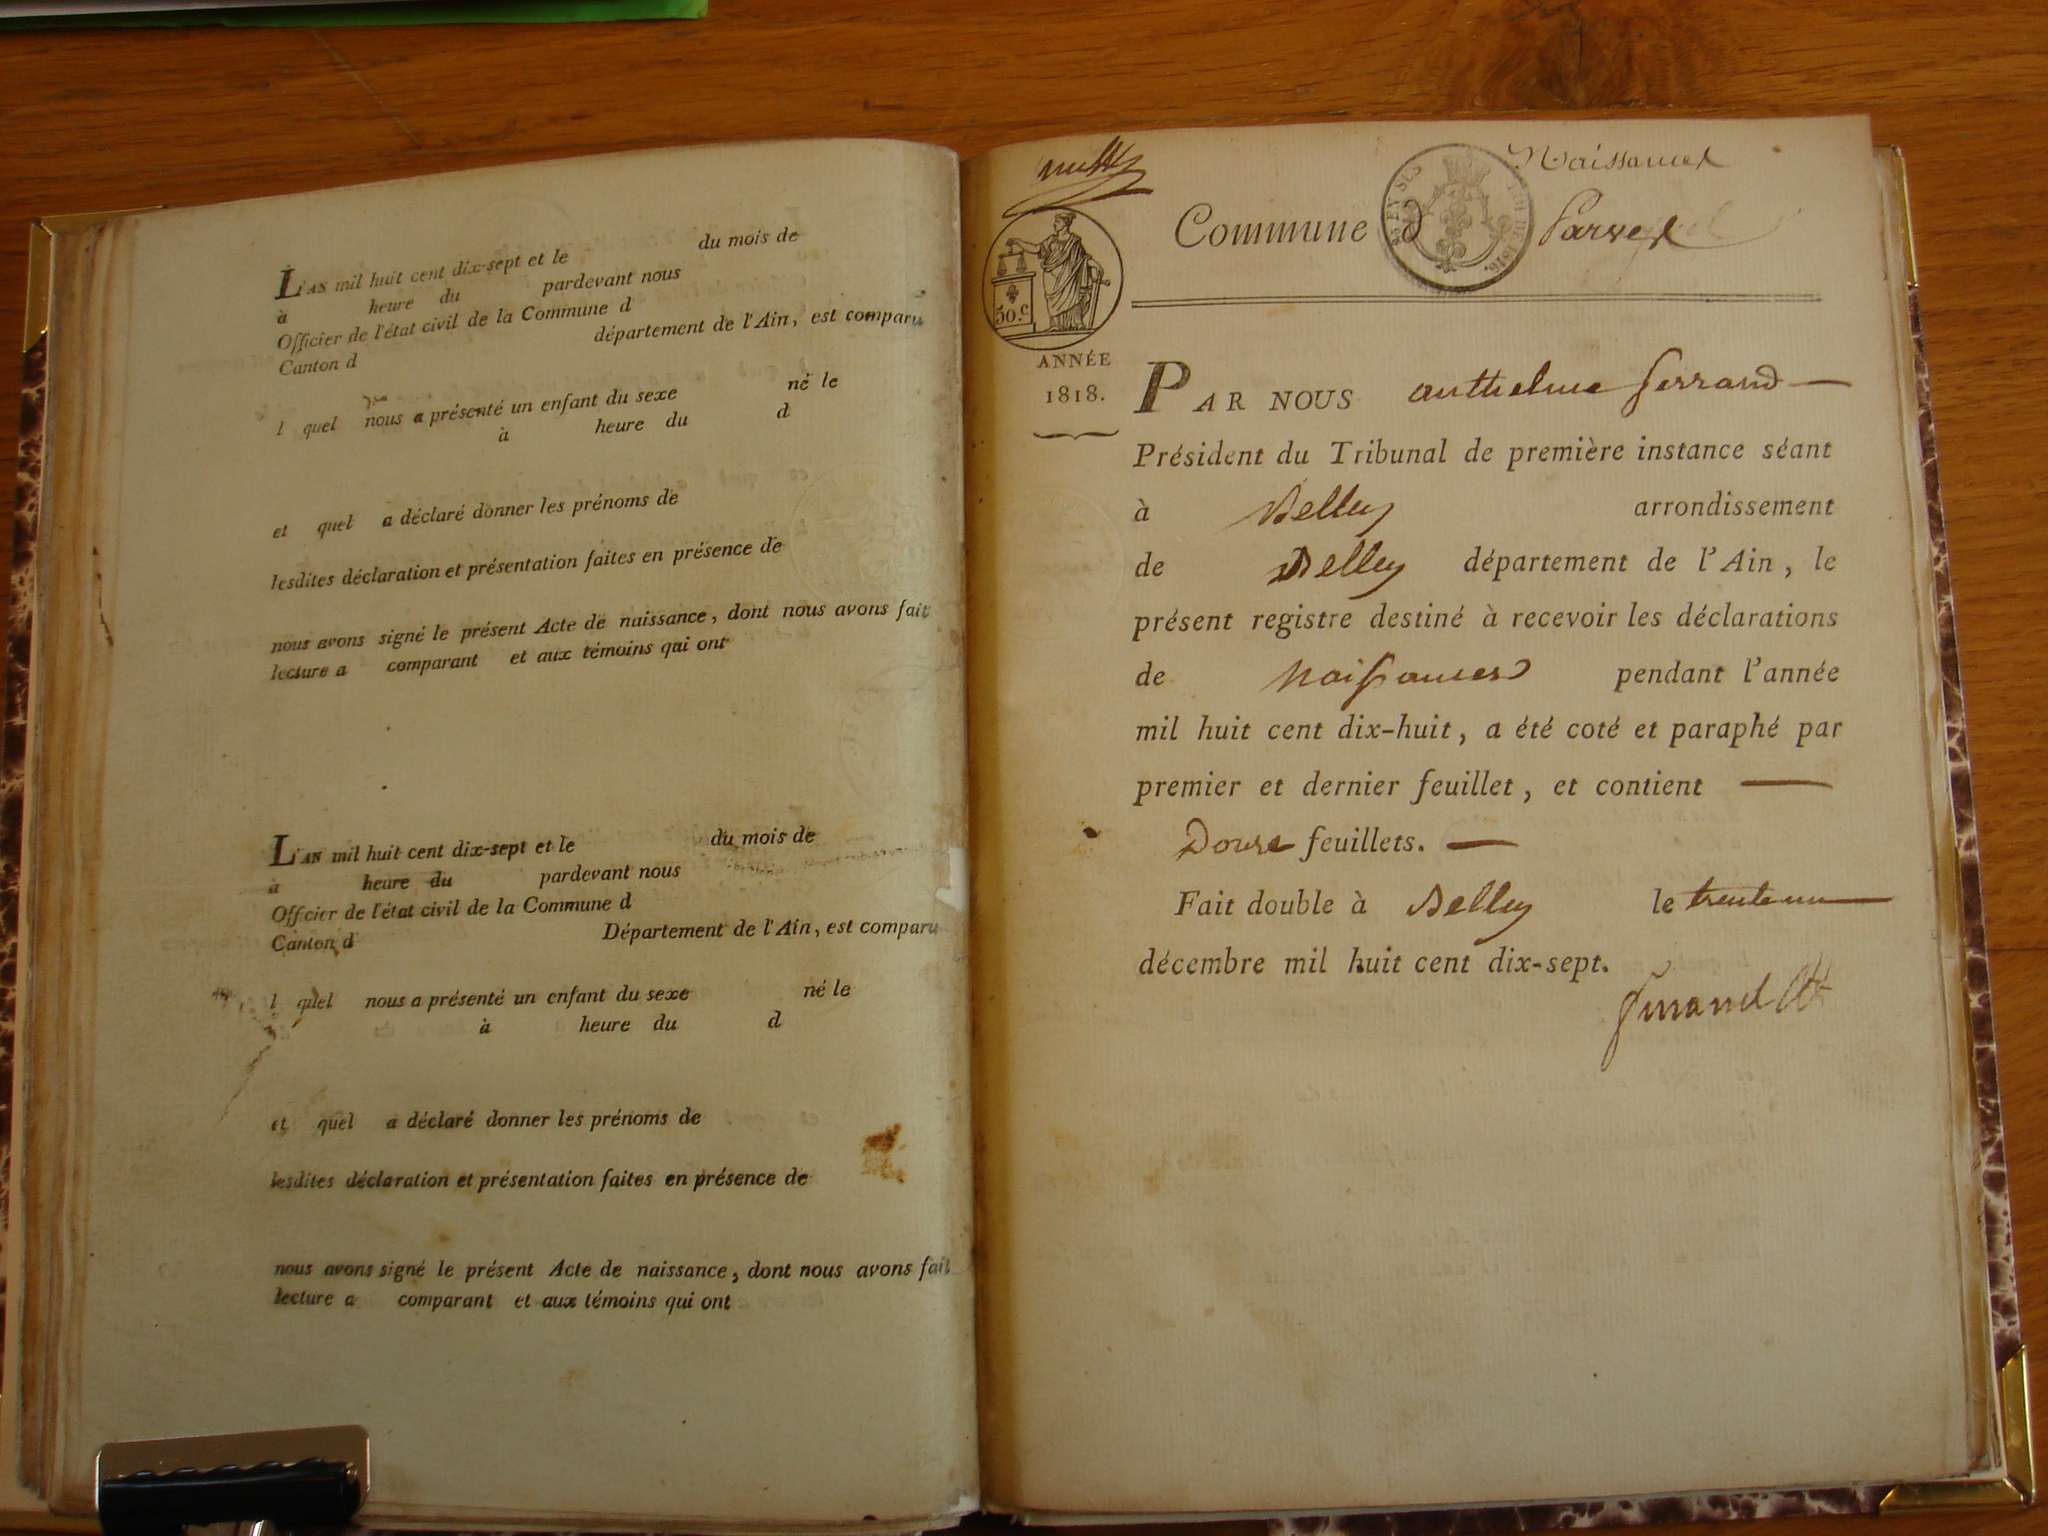 L'AN mil huit cent dix-sept et le du mois de
à heure du pardevant nous
Officier de l'état civil de la Commune d
Canton d département de l'Ain, est comparu
l quel nous a présenté un enfant du sexe né le
à heure du d
et quel a déclaré donner les prénoms de
lesdites déclaration et présentation faites en présence de
nous avons signé le présent Acte de naissance, dont nous avons fait
lecture a comparant et aux témoins qui ont
L'AN mil huit cent dix-sept et le du mois de
à heure du pardevant nous
Officier de l'état civil de la Commune d
Canton d Département de l'Ain, est comparu
l quel nous a présenté un enfant du sexe né le
à heure du d
et quel a déclaré donner les prénoms de
lesdites déclaration et présentation faites en présence de
nous avons signé le présent Acte de naissance, dont nous avons fait
lecture a comparant et aux témoins qui ont
Naissances
Commune d Parves
50.c
ANNÉE
1818.
PAR NOUS anthelme ferrand
Président du Tribunal de première instance séant
à Belley arrondissement
de Belley département de l'Ain, le
présent registre destiné à recevoir les déclarations
de Naissances pendant l'année
mil huit cent dix-huit, a été coté et paraphé par
premier et dernier feuillet, et contient
Douze feuillets.
Fait double à Belley le trente un
décembre mil huit cent dix-sept.
ferrand